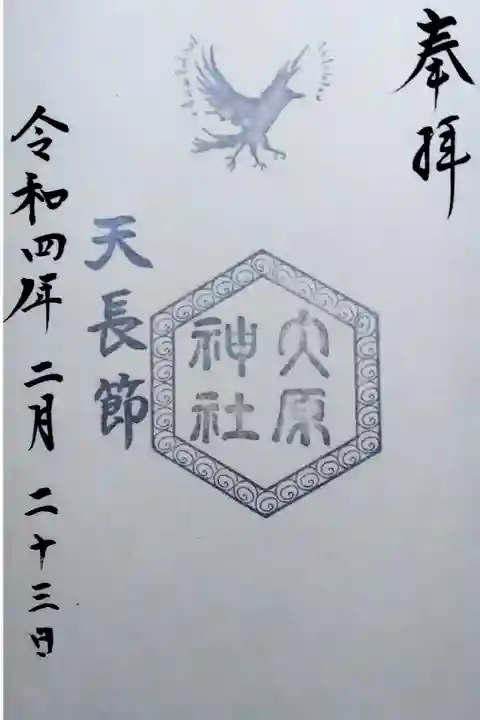 奉拝
大原
神社
天長節
令和四年二月二十三日